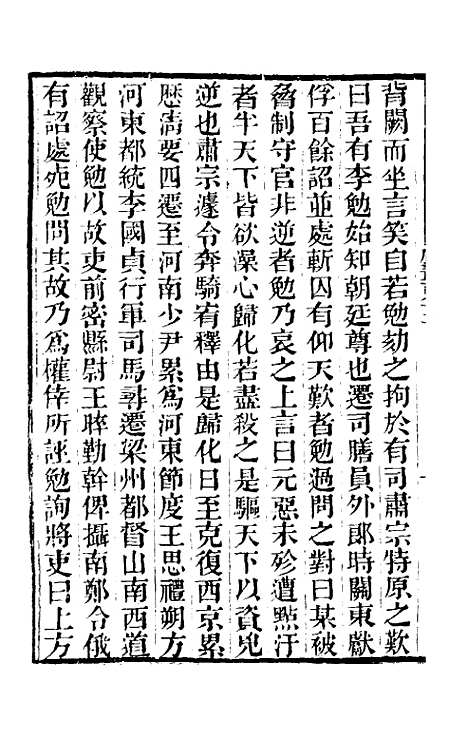 背闕而坐言笑自若勉劾之拘於有司肅宗特原之歎
曰吾有李勉始知朝廷尊也遷司膳員外郎時關東獻
俘百餘詔並處斬囚有仰天歎者勉過問之對曰某被
脅制守官非逆者勉乃哀之上言曰元惡未殄遭點汙
者半天下皆欲澡心歸化若盡殺之是驅天下以資兇
逆也肅宗遽令奔騎宥釋由是歸化日至克復西京累
歷清要四遷至河南少尹累爲河東節度王思禮朔方
河東都統李國貞行軍司馬尋遷梁州都督山南西道
觀察使勉以故吏前密縣尉王晬勤幹俾攝南鄭令俄
有詔處死勉問其故乃爲權倖所誣勉詢將吏曰上方